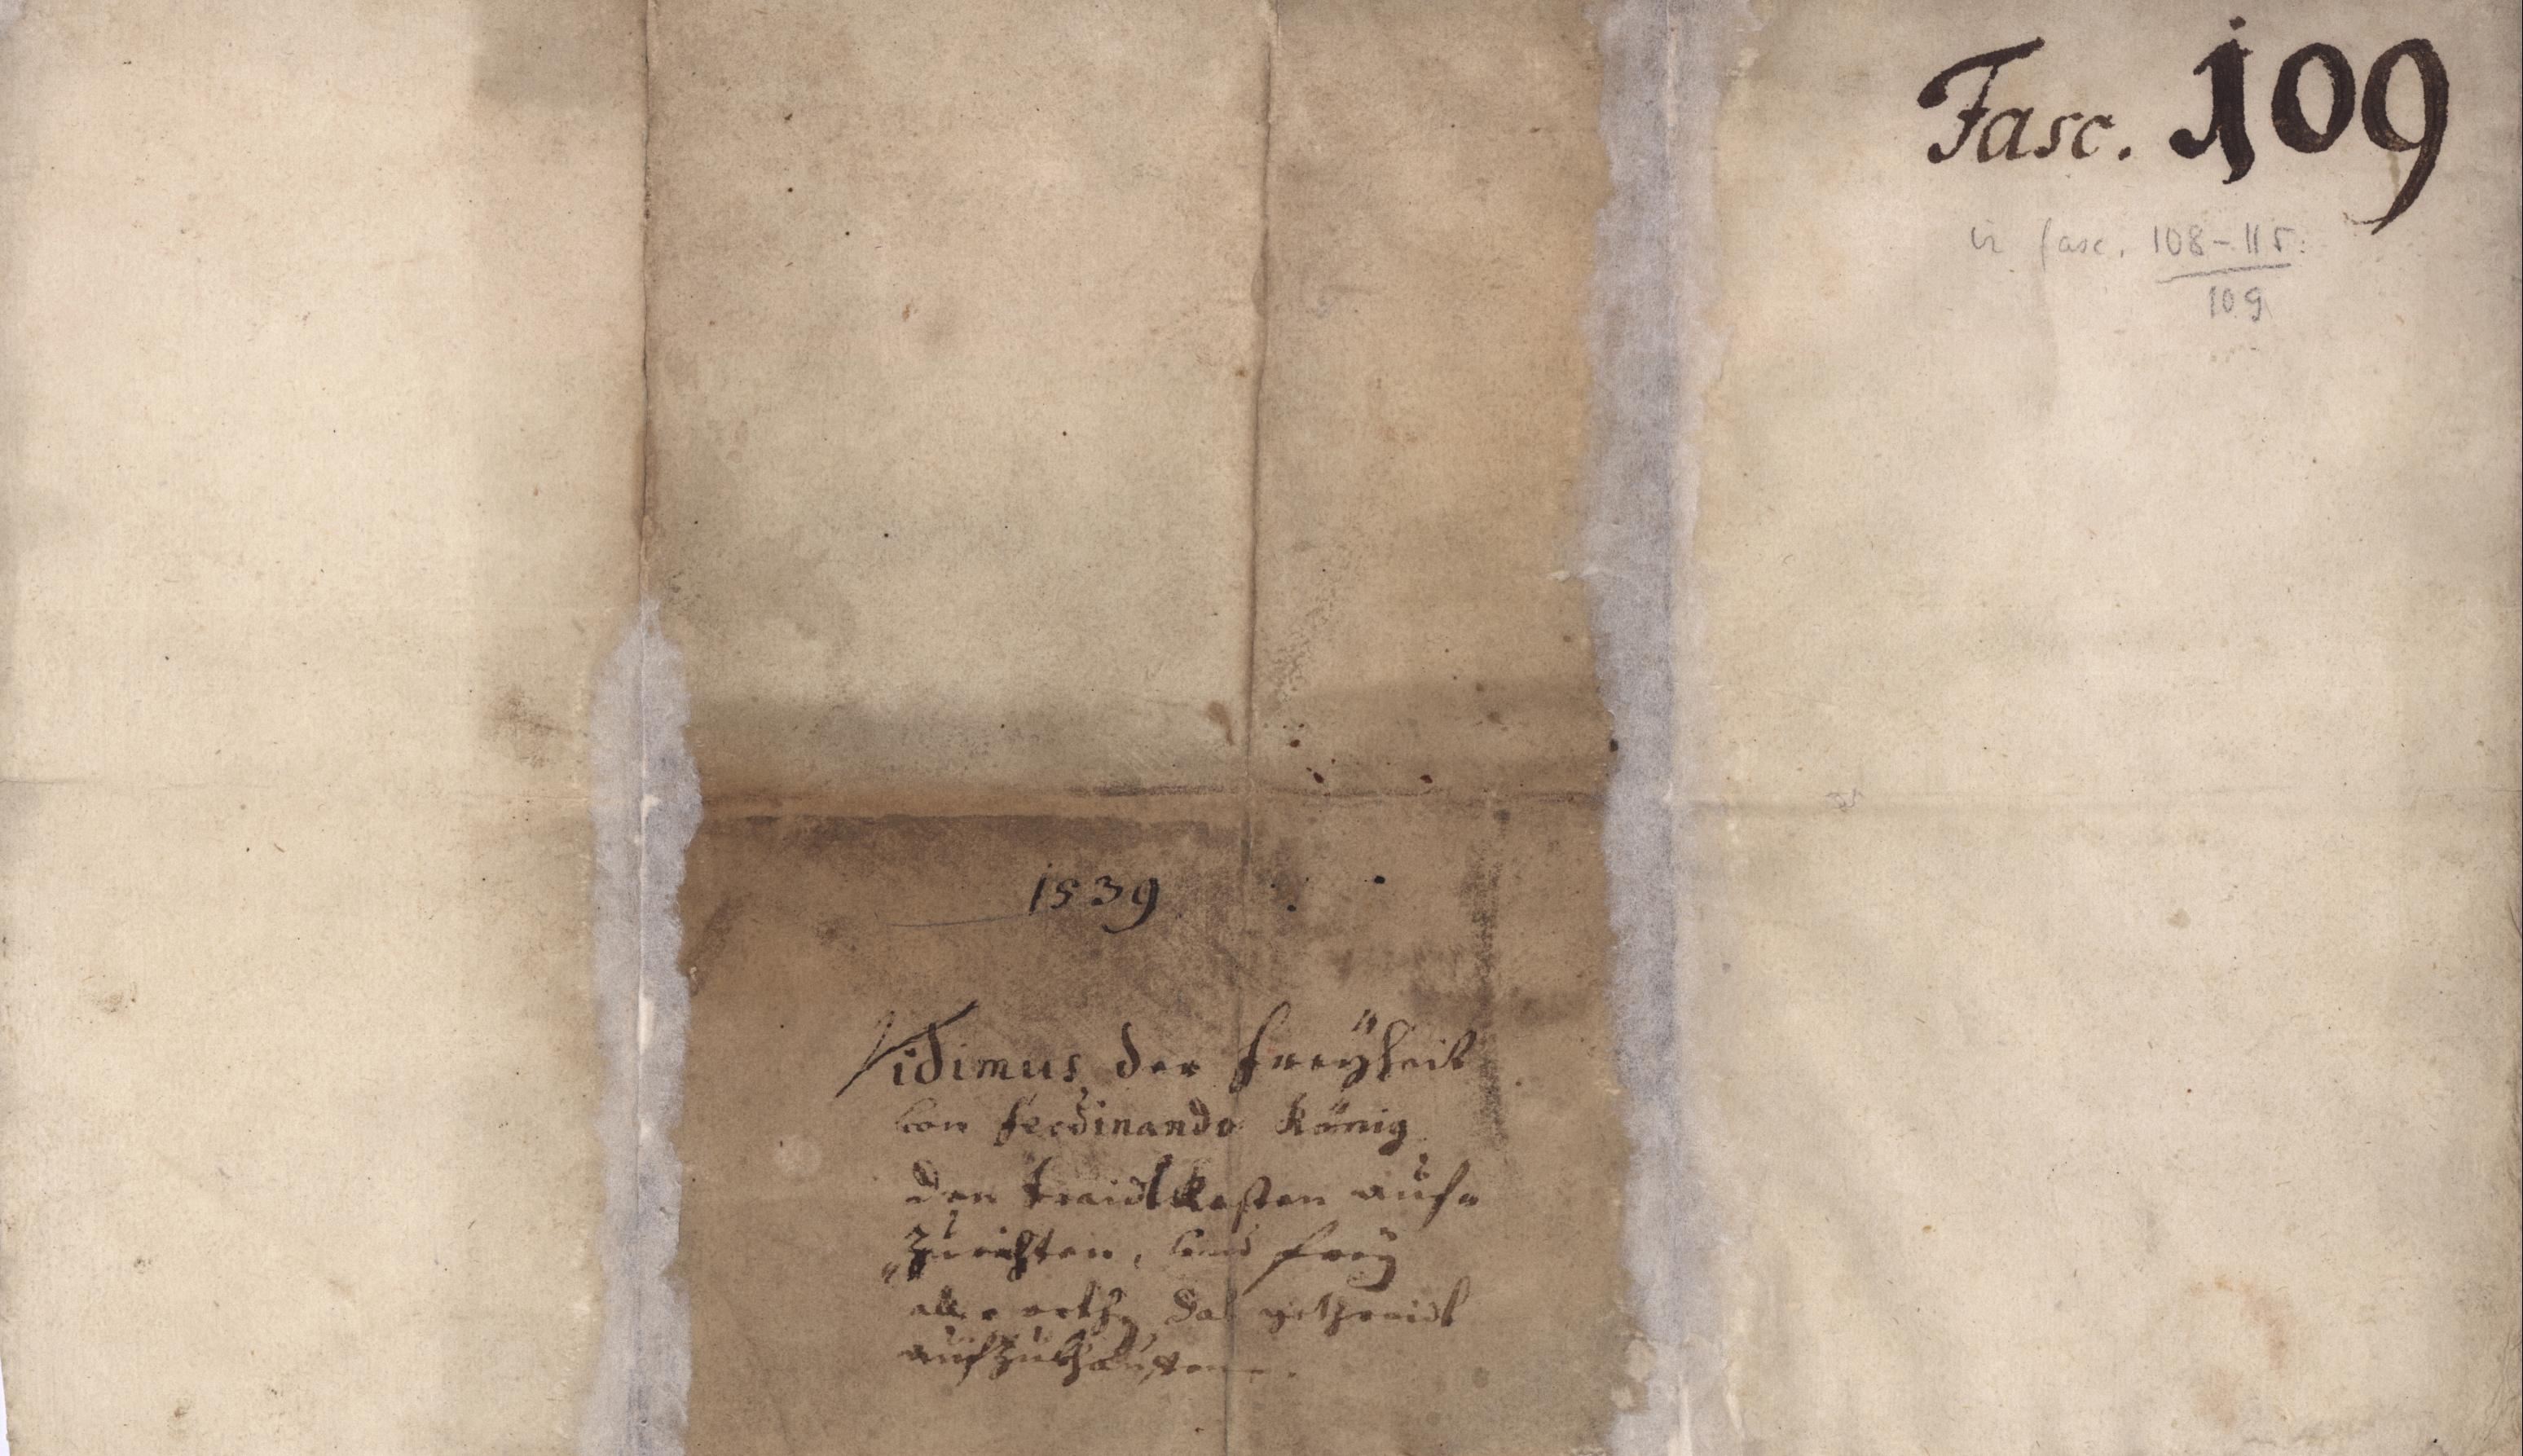 Fasc. 109
in fasc. 108-115.
109
1539
Vidimus der Freÿheit
von Ferdinando König
den traidtkasten auf-
zurichten, vnd freÿ
aller orth, das gethraidt
aufzukhauffen.